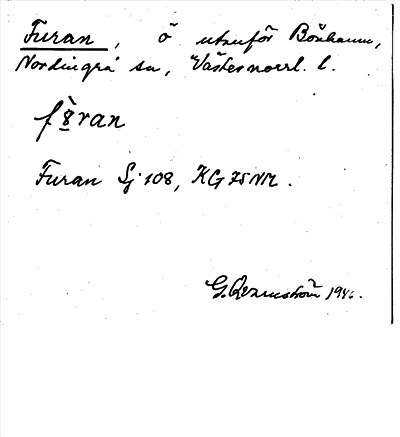 Furan, ö utanför Bönhamn,
Nordingrå sn, Västernorrl. l.
fùran
Furan Sj 108, KG 75 NM.
G. 1946.